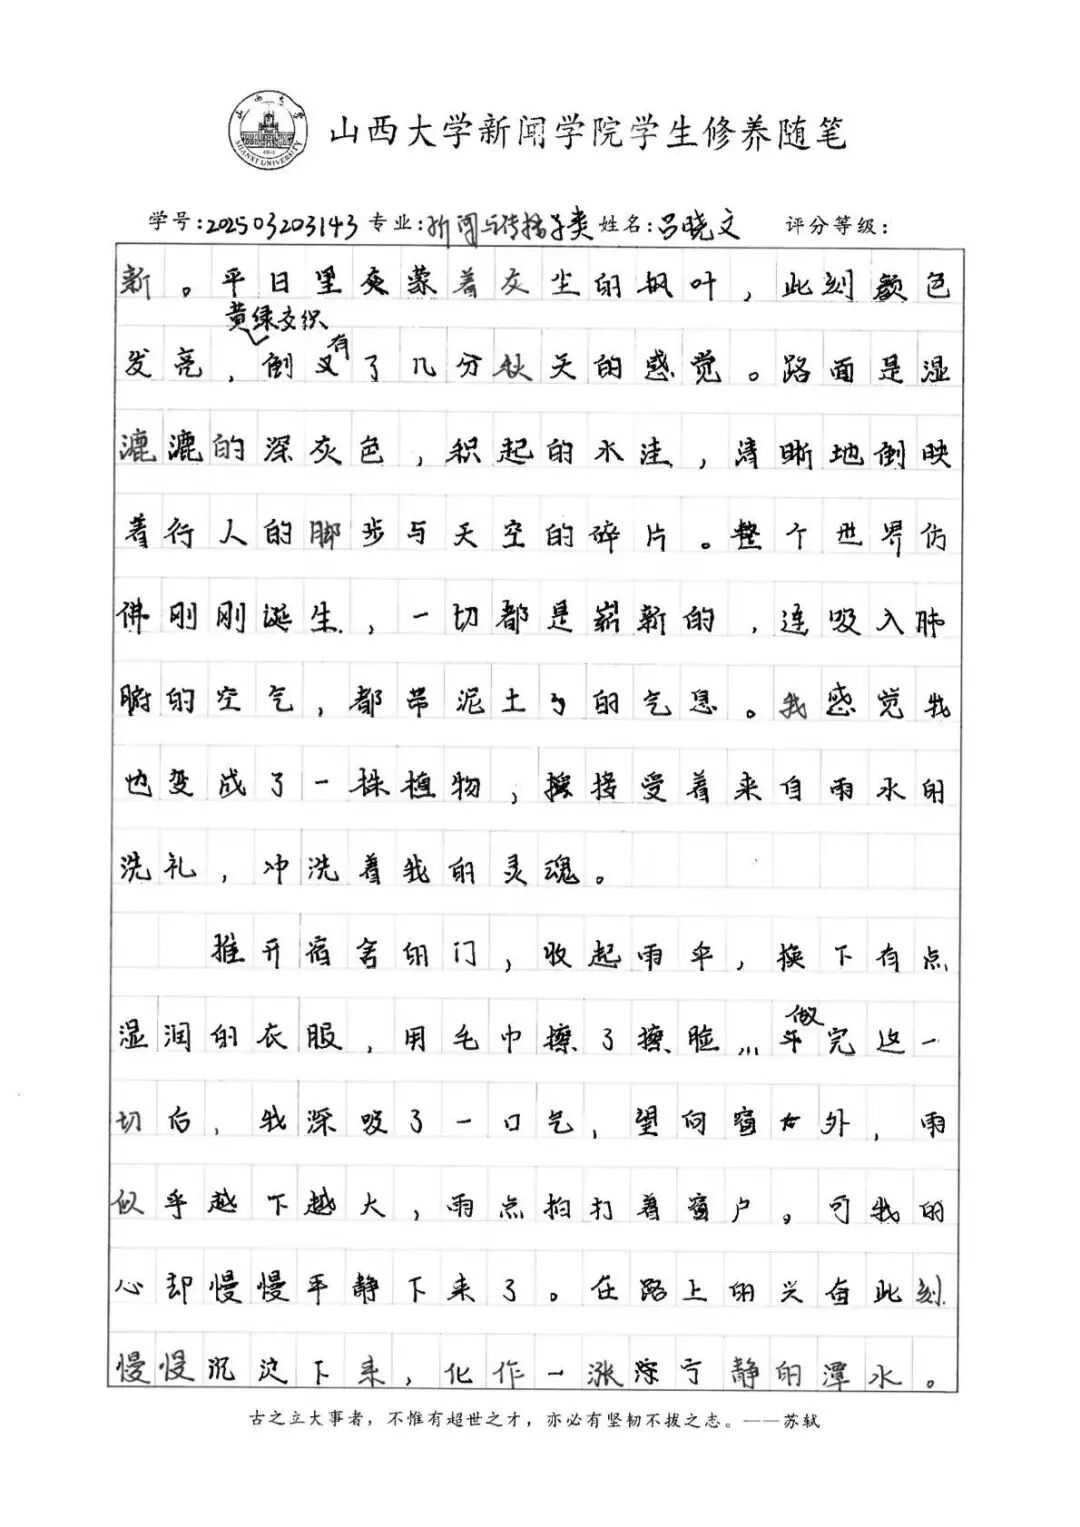 山西大学新闻学院学生修养随笔
学号:202503203143 专业:新闻与传播学类 姓名:吕晓文 评分等级:
新。平日里灰蒙着灰尘的枫叶，此刻颜色
黄绿交织
发亮，倒又有了几分秋天的感觉。路面是湿
漉漉的深灰色，积起的水洼，清晰地倒映
着行人的脚步与天空的碎片。整个世界仿
佛刚刚诞生，一切都是崭新的，连吸入肺
腑的空气，都带泥土的气息。我感觉我
也变成了一株植物，接受着来自雨水的
洗礼，冲洗着我的灵魂。
推开宿舍的门，收起雨伞，换下有点
湿润的衣服，用毛巾擦了擦脸...做完这一
切后，我深吸了一口气，望向窗外，雨
似乎越下越大，雨点拍打着窗户。可我的
心却慢慢平静下来了。在路上的兴奋此刻
慢慢沉淀下来，化作一涨深宁静的潭水。
古之立大事者，不惟有超世之才，亦必有坚韧不拔之志。——苏轼